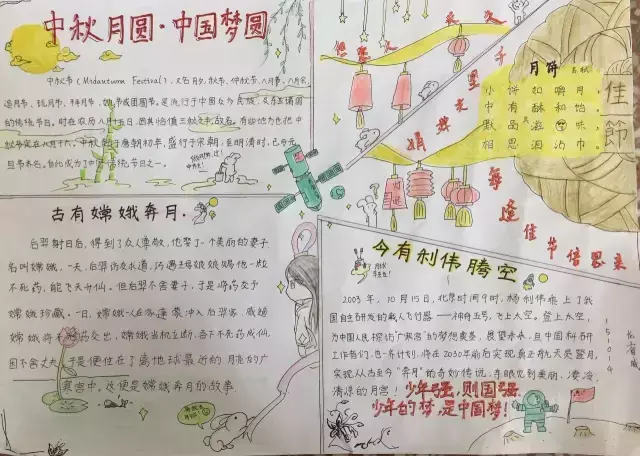 中秋月圆·中国梦圆
中秋节(Midautumn Festival),又名月夕、秋节、仲秋节、八月节、八月会、
追月节、玩月节、拜月节、节或团圆节,是流行于中国众多民族
的传统节日。时在农历八月十五日;因其恰值三秋之半,故名。有些地方也把中
秋节定在八月十六。中秋始于唐朝初年,盛行于宋朝,至明清时,已与元
旦节齐名。自此成为了中国传统节日之一。
但愿人长久
千里共婵娟
每逢佳节倍思亲
佳節
月饼
小饼如嚼月,
中有酥和饴
默品其滋味,
相思泪沾巾。
古有嫦娥奔月.
后羿射日后,得到了众人尊敬,也娶了一个美丽的妻子
名叫嫦娥,一天,后羿访友求道,巧遇王母娘娘赐他一粒
不死药,能飞天升仙,但后羿不舍妻子,于是将药交予
嫦娥珍藏。一日,嫦娥一人在家,逢蒙冲入后羿家,威逼
嫦娥将不死药交出,嫦娥当机立断,吞下不死药成仙,
因不舍丈夫,于是便住在了离地球最近的月亮的广
寒宫中。这便是嫦娥奔月的故事
今有利伟腾空
2003年,10月15日,北京时间9时,杨利伟乘上了我
国自主研发的载人飞行器——神舟五号,飞上太空。登上太空,
为中国人民探访"广寒宫"的梦想奠基,展望未来,且中国科研
工作者们,已一步计划,将在2030年前后实现真正航天员登月,
实现从古至今"奔月"的奇妙传说,亲眼见到美丽、凄冷、
清凉的月宫!
少年强,则国强
少年的梦,是中国梦!
151014